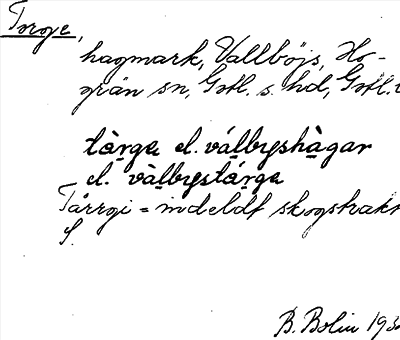 Torge,
hagmark, Vallbÿs, Ho-
grän sn, Gotl. s. hd, Gotl.
tàrga el. válbyshàgar
el. vàlbystárga
Tárrgi = indeldt skogstrakt
f.
B. Bolin 193